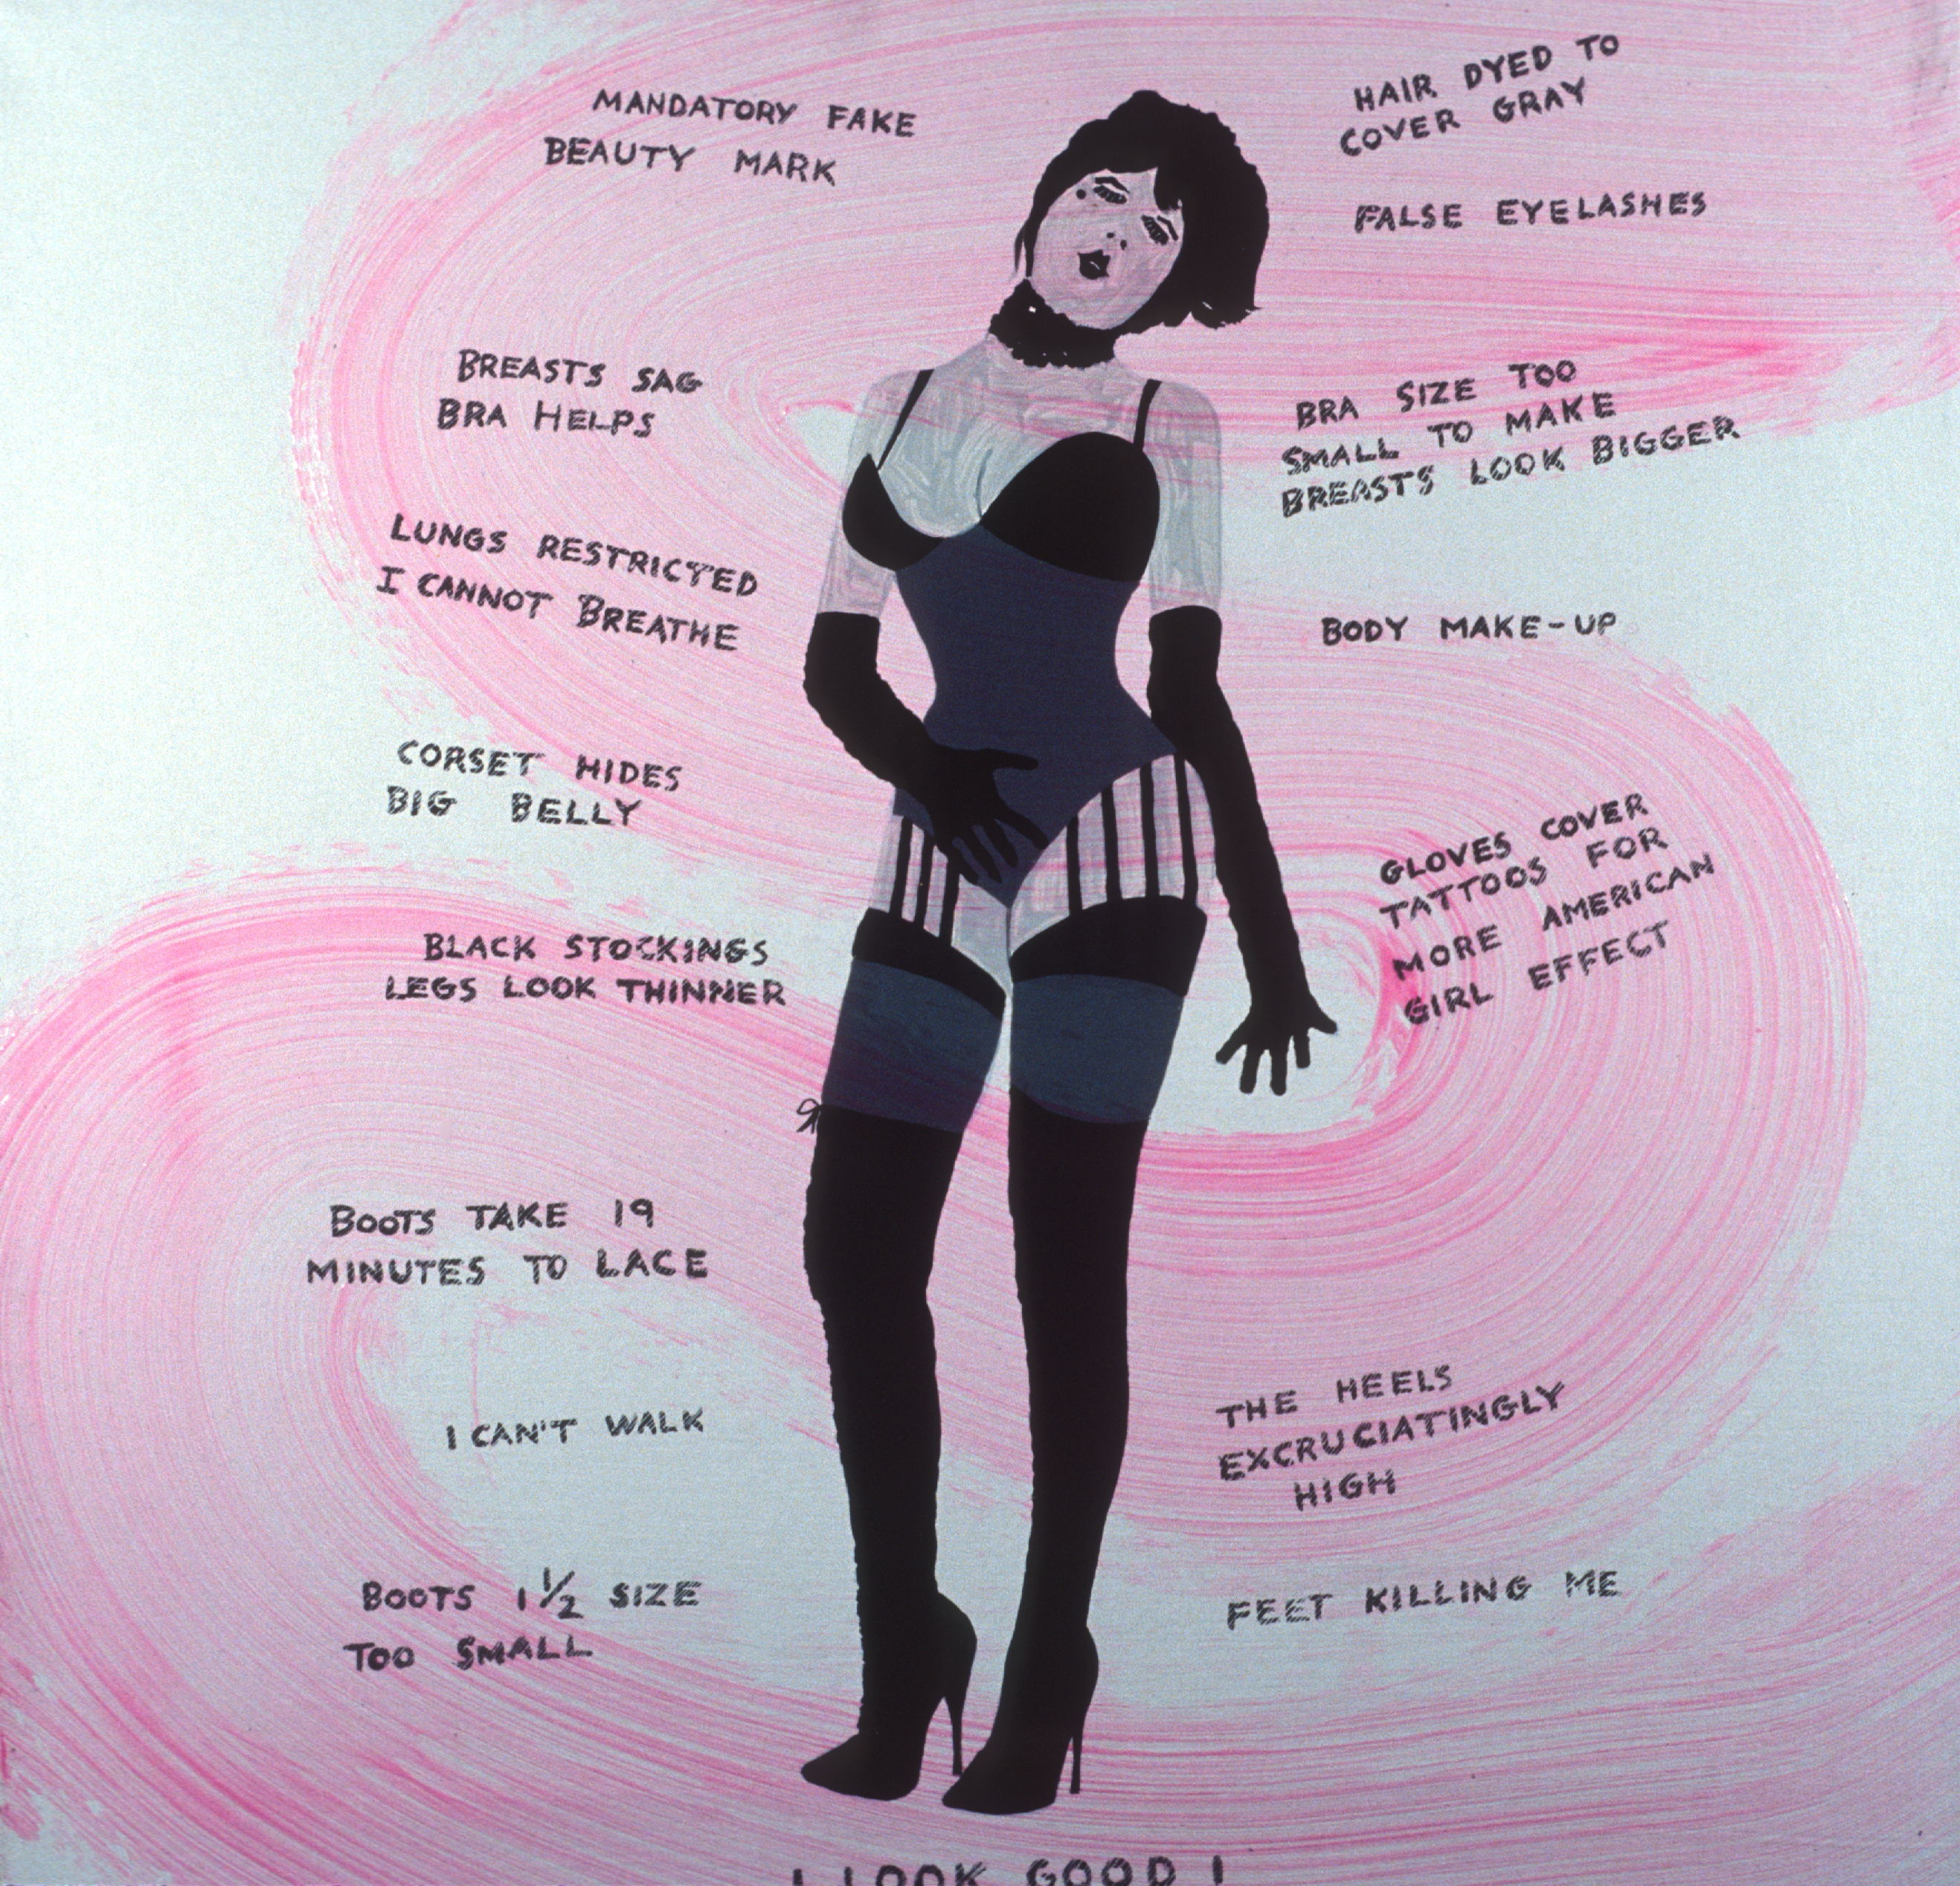 MANDATORY FAKE
BEAUTY MARK
HAIR DYED TO
COVER GRAY
FALSE EYELASHES
BREASTS SAG
BRA HELPS
BRA SIZE TOO
SMALL TO MAKE
BREASTS LOOK BIGGER
LUNGS RESTRICTED
I CANNOT BREATHE
BODY MAKE-UP
CORSET HIDES
BIG BELLY
GLOVES COVER
TATTOOS FOR
MORE AMERICAN
GIRL EFFECT
BLACK STOCKINGS
LEGS LOOK THINNER
BOOTS TAKE 19
MINUTES TO LACE
I CAN'T WALK
THE HEELS
EXCRUCIATINGLY
HIGH
BOOTS 1 1/2 SIZE
TOO SMALL
FEET KILLING ME
I LOOK GOOD !